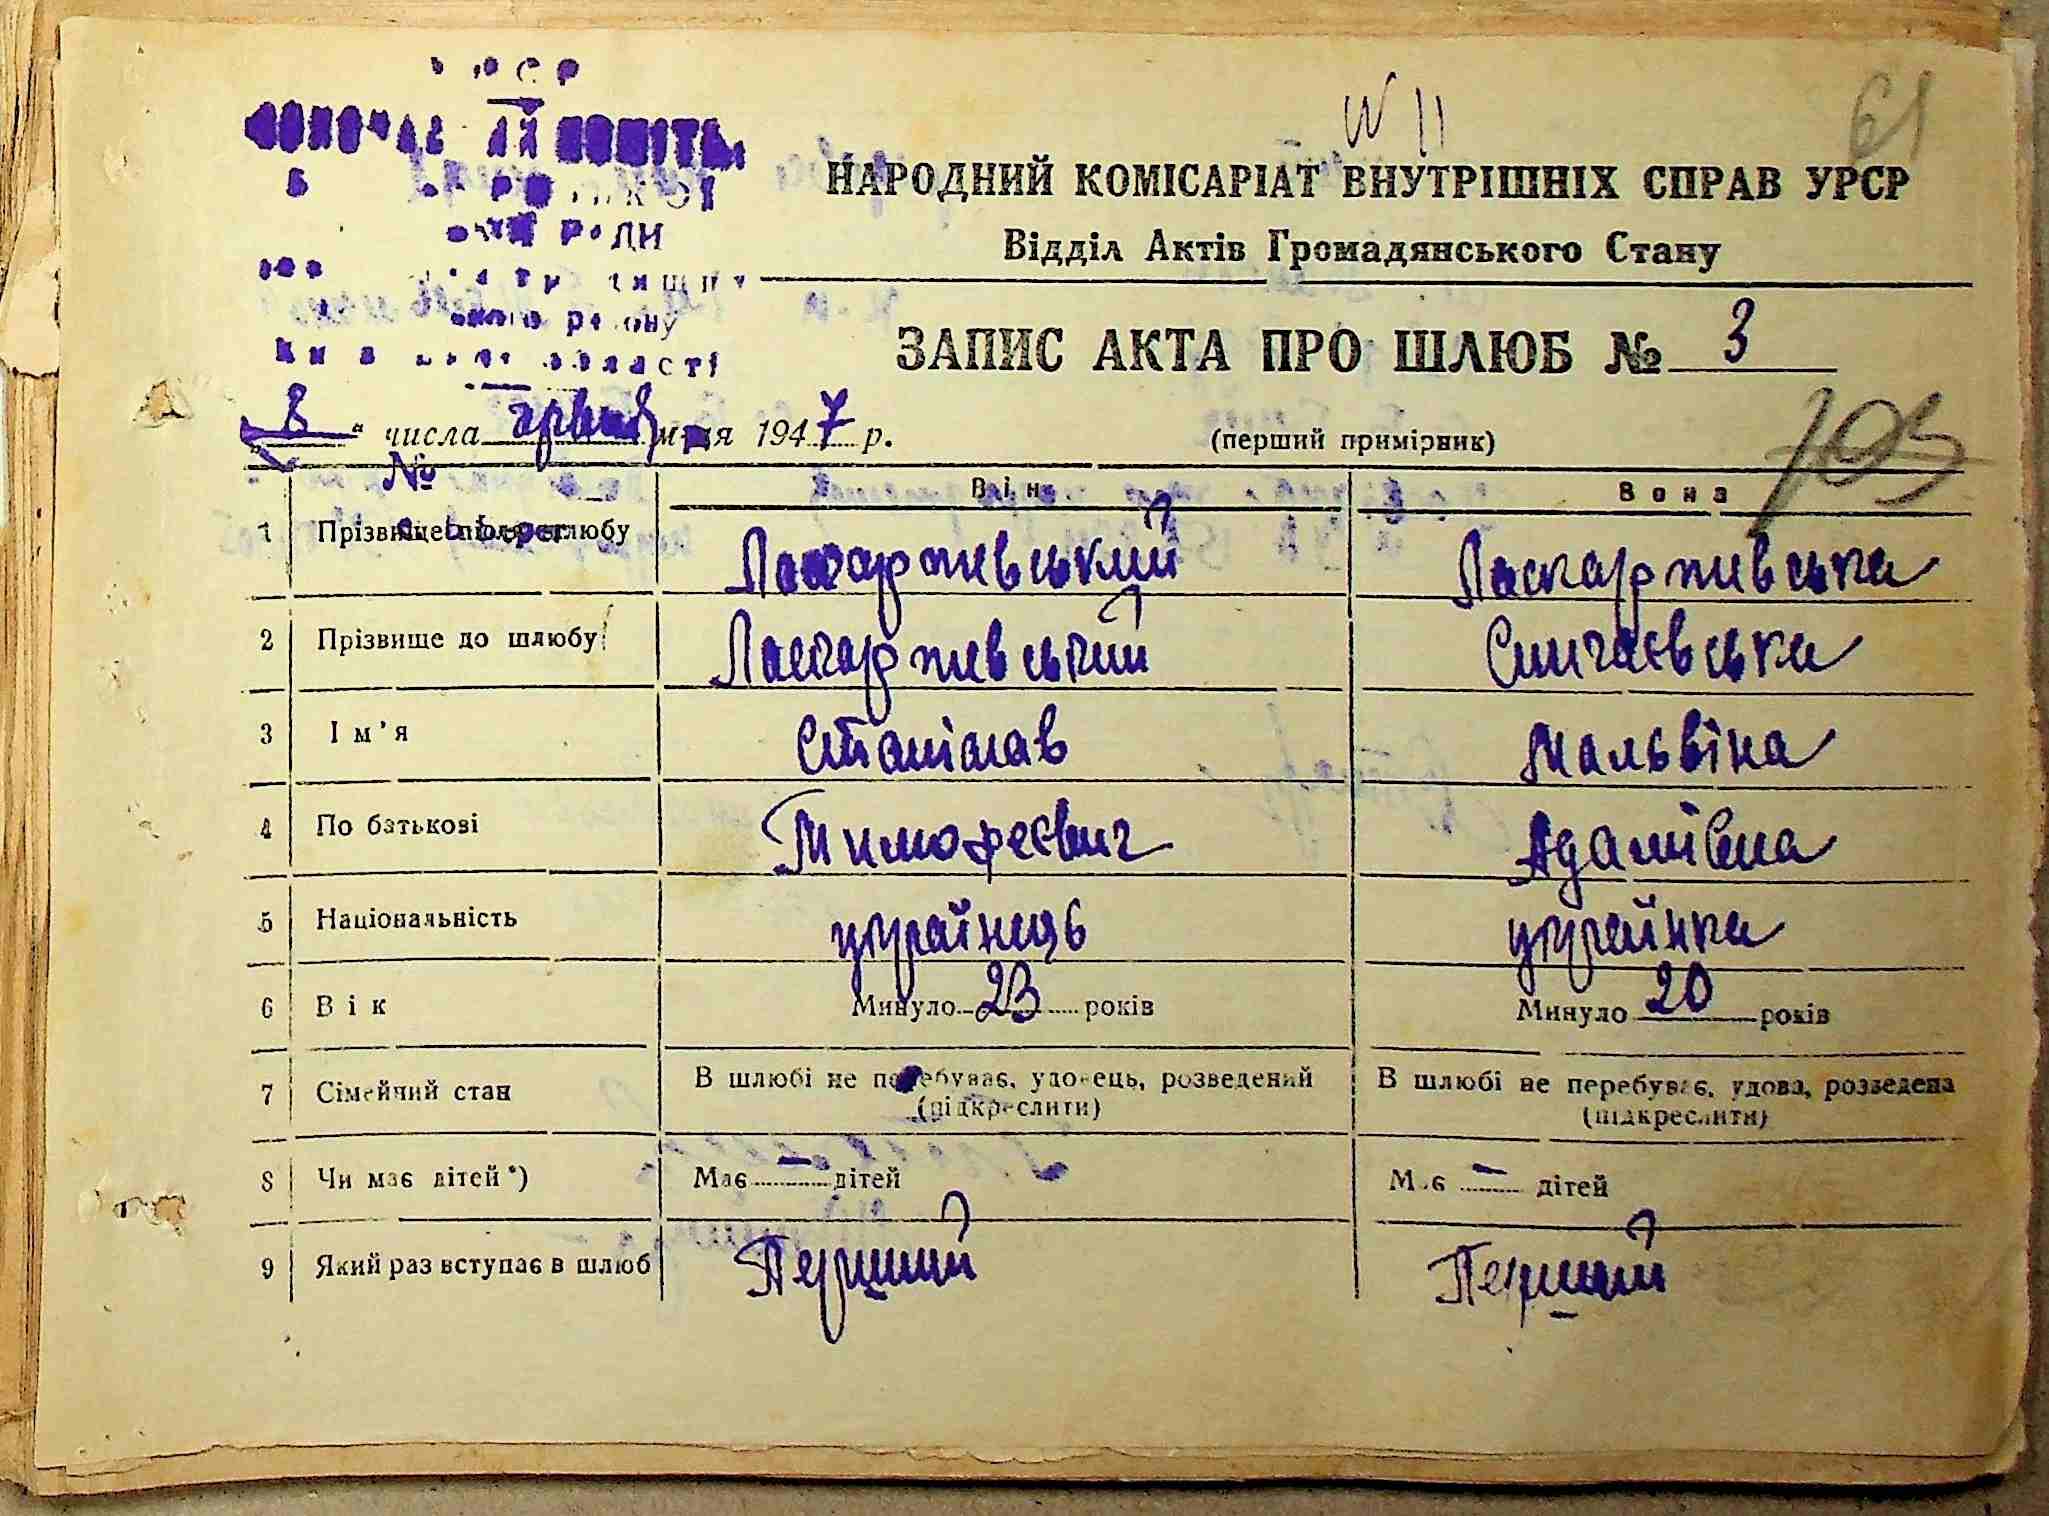 № 11
61
НАРОДНИЙ КОМІСАРІАТ ВНУТРІШНІХ СПРАВ УРСР
Відділ Актів Громадянського Стану
ЗАПИС АКТА ПРО ШЛЮБ № 3
області
„8“ числа червня м-ця 1947 р.
(перший примірник)
103
№
Він
Вона
1 Прізвище після шлюбу Ласкаржевський Ласкаржевська
2 Прізвище до шлюбу Ласкаржевський Сингаєвська
3 Ім'я Станіслав Мальвіна
4 По батькові Тимофеєвич Адамівна
5 Національність українець українка
6 Вік Минуло 23 років Минуло 20 років
7 Сімейний стан В шлюбі не перебуває, удовець, розведений В шлюбі не перебуває, удова, розведена
(підкреслити) (підкреслити)
8 Чи має дітей*) Має — дітей Має — дітей
9 Який раз вступає в шлюб Перший Перший